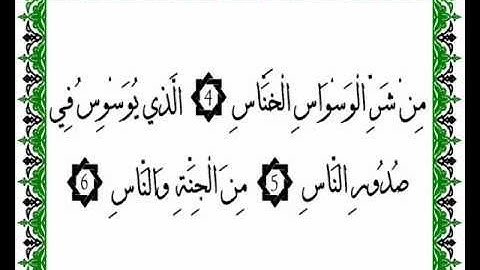 مِنْ شَرِّ الْوَسْوَاسِ الْخَنَّاسِ 4 الَّذِي يُوَسْوِسُ فِي
صُدُورِ النَّاسِ 5 مِنَ الْجِنَّةِ وَالنَّاسِ 6